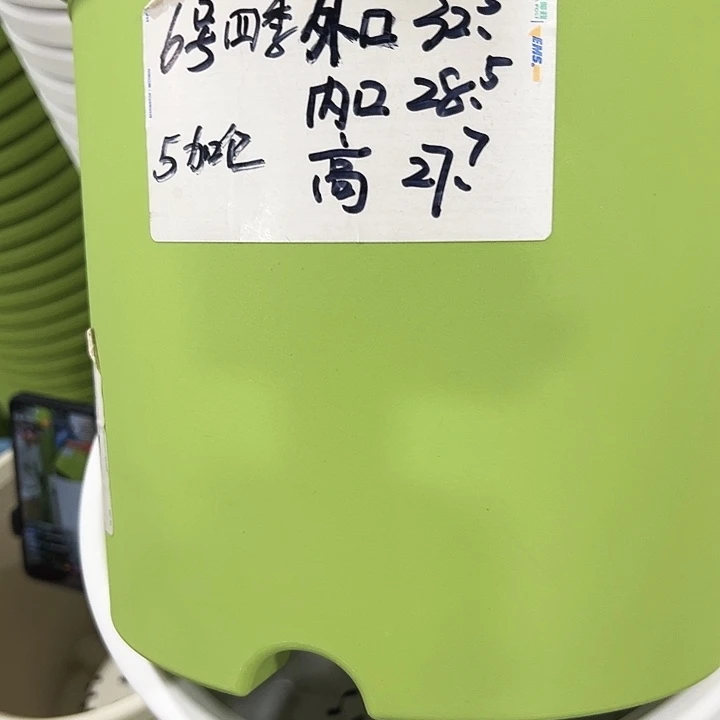 6号四季 外口 32.5
内口 28.5
5加仑 高 27.7
EMS